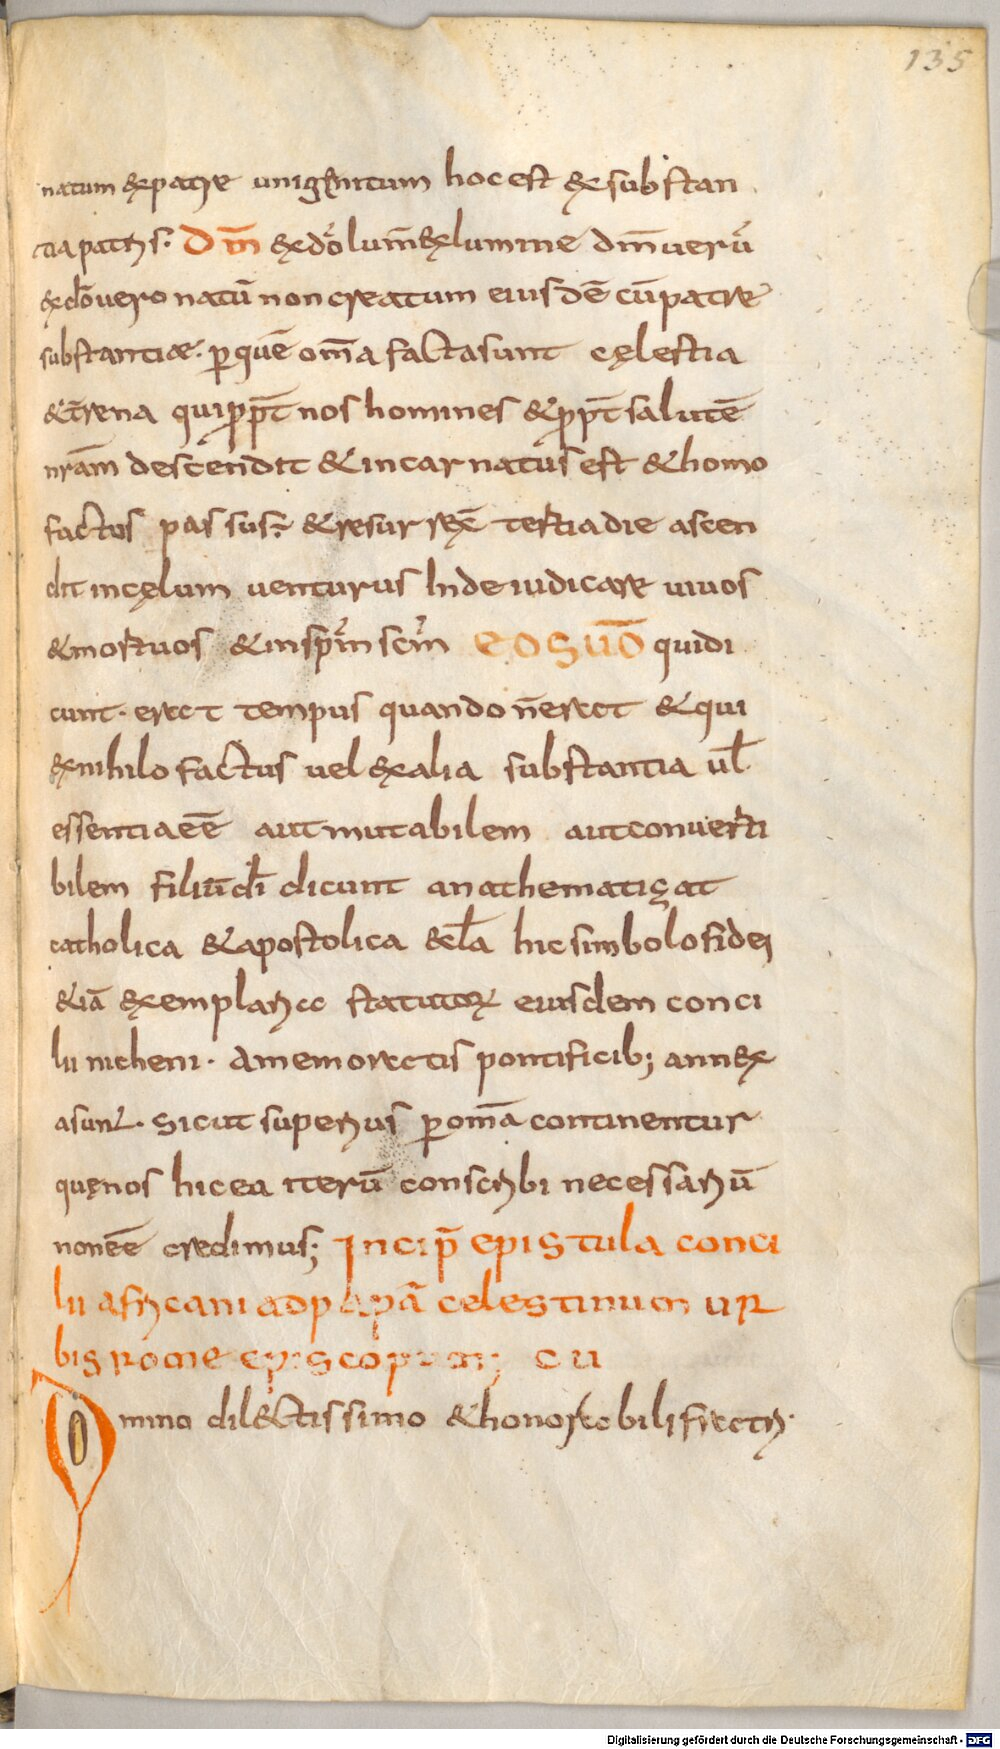 135
natum &xpatre unigenitum hoc est &xsubstan
tia patris. Dm̄ &xdō lum̄&xlumine dm̄ uerū
&xdō uero natū non creatum eiusdē cū patre
substantiae. ꝑ quē om̄a facta sunt cęlestia
&t̄rena qui ꝓpt̄ nos homines &ꝓpt̄ salutē
nrām descendit & incarnatus est & homo
factus passus. & resurrex̄ tertia die ascen
dit in cęlum uenturus Inde iudicare uiuos
& mortuos & in sp̄m sc̄m EOS UŌ qui di
cunt. erat tempus quando n̄ erat & qui
&x nihilo factus uel &x alia substantia ul̄
essentia eē aut mutabilem aut conuerti
bilem filiū dī dicunt anathematiçat
catholica & apostolica &cl̄a hic simbolo fidei
&iā &xemplaria statutorꝝ eiusdem conci
lii nicheni. a memoratis pontificib; ann&x
a sunt. Sicut superius ꝑ om̄a continentur
quę nos hic ea iterū conscribi necessariū
non eē credimus; Incip̄ epistula conci
lii africani ad papā celestinum ur
bis rome episcopum; CU
Domino dil&ctissimo & honorabili fratri.
Digitalisierung gefördert durch die Deutsche Forschungsgemeinschaft - DFG